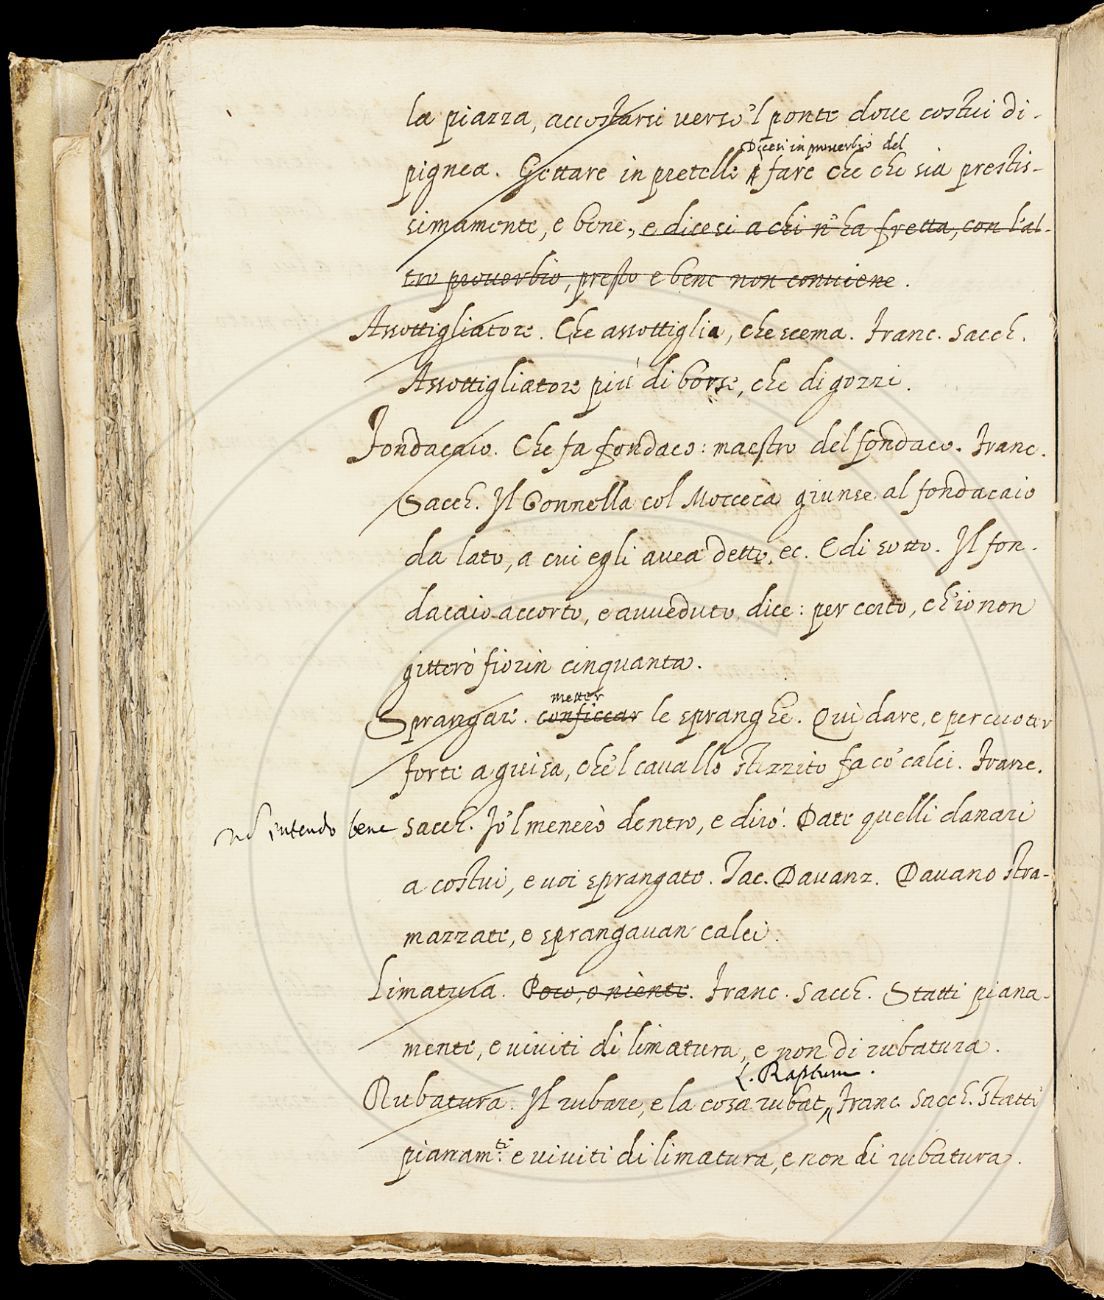 la piazza, accostarsi verso 'l ponte dove costui di-
Dicesi in proverbio del
pignea. Gettare in pretelle fare che che sia prestis-
simamente, e bene, e dicesi a chi n'ha fretta, con l'al-
tro proverbio, presto e bene non conviene.
Assottigliatore. Che assottiglia, che scema. Franc. Sacch.
Assottigliatore più di borse, che di gozzi.
Fondacaio. Che fa fondaco: maestro del fondaco. Franc.
Sacch. Il Gonnella col Mocceca giunse al fondacaio
da lato, a cui egli avea detto, ec. E di sotto. Il fon-
dacaio accorto, e avveduto dice: per certo, ch'io non
gitterò fiorin cinquanta.
metter
Sprangare. conficcar le spranghe. Quì dare, e percuoter
forte a guisa, che 'l cavallo stizzito fa co' calci. Franc.
nõ intendo bene Sacch. Io 'l menerò dentro, e dirò: Date quelli danari
a costui, e voi sprangate. Tac. Davanz. Davano stra-
mazzate, e sprangavan calci.
Limatura. Poco, o niente. Franc. Sacch. Statti piana-
mente, e viviti di limatura, e non di rubatura.
L. Raptum.
Rubatura. Il rubare, e la cosa rubat, Franc. Sacch. Statti
pianam.te e viviti di limatura, e non di rubatura.